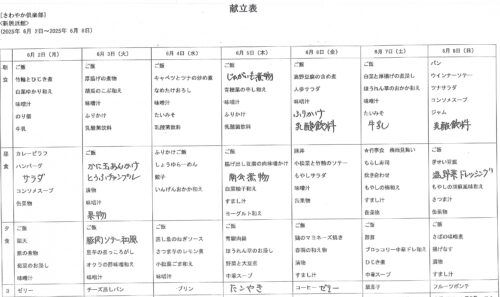 献立表
[さわやか倶楽部]
<新居浜館>
(2025年 6月 2日～2025年 6月 8日)
6月 2日 (月)
6月 3日 (火)
6月 4日 (水)
6月 5日 (木)
6月 6日 (金)
6月 7日 (土)
6月 8日 (日)
朝食
ご飯
竹輪とひじき煮
白菜ゆかり和え
味噌汁
のり佃
牛乳
ご飯
厚揚げの煮物
胡瓜のごぶ和え
味噌汁
ふりかけ
乳酸菌飲料
ご飯
キャベツとツナの炒め煮
なめたけおろし
味噌汁
たいみそ
乳酸菌飲料
ご飯
じゃがいも煮物
青梗菜の辛し和え
味噌汁
ふりかけ
乳酸菌飲料
ご飯
高野豆腐の含め煮
人参サラダ
味噌汁
ふりかけ
乳酸飲料
ご飯
白菜と厚揚げの煮浸し
ほうれん草のおかか和え
味噌汁
たいみそ
牛乳
パン
ウインナーソテー
ツナサラダ
コンソメスープ
ジャム
乳酸飲料
昼食
カレーピラフ
ハンバーグ
サラダ
コンソメスープ
缶果物
ご飯
かに玉あんかけ
とうふチャンプル
漬物
味噌汁
果物
ふりかけご飯
しょうゆらーめん
餃子
いんげんおかか和え
ご飯
揚げ出し豆腐の肉味噌かけ
南瓜煮物
白菜柚子和え
すまし汁
ヨーグルト和え
豚丼
小松菜と竹輪のソテー
もやしサラダ
味噌汁
缶果物
☆竹亭会 梅雨見舞い
ちらし寿司
炊き合わせ
もやしの梅和え
すまし汁
缶果物
ご飯
芋せい豆腐
温野菜ドレッシング
もやしの胡麻風味和え
さつま汁
缶果物
夕食
ご飯
鶏天
鉄の煮物
菊菜のお浸し
味噌汁
ご飯
豚肉ソテー和風
里芋の煮っころがし
オクラの酢味噌和え
味噌汁
ご飯
蒸し魚のねぎソース
さつま芋のレモン煮
小松菜ごま和え
味噌汁
ご飯
青椒肉絲
ほうれん草のお浸し
野菜と大豆煮
中華スープ
ご飯
鶏のマヨネーズ焼き
春雨の和え物
漬物
すまし汁
ご飯
酢豚
ブロッコリー中華ドレ掛け
ひじき煮
中華スープ
ご飯
さばの味噌煮
揚げなす
漬物
すまし汁
3
ゼリー
チーズ蒸しパン
プリン
たこやき
コーヒーゼリー
菓子
フルーツポンチ